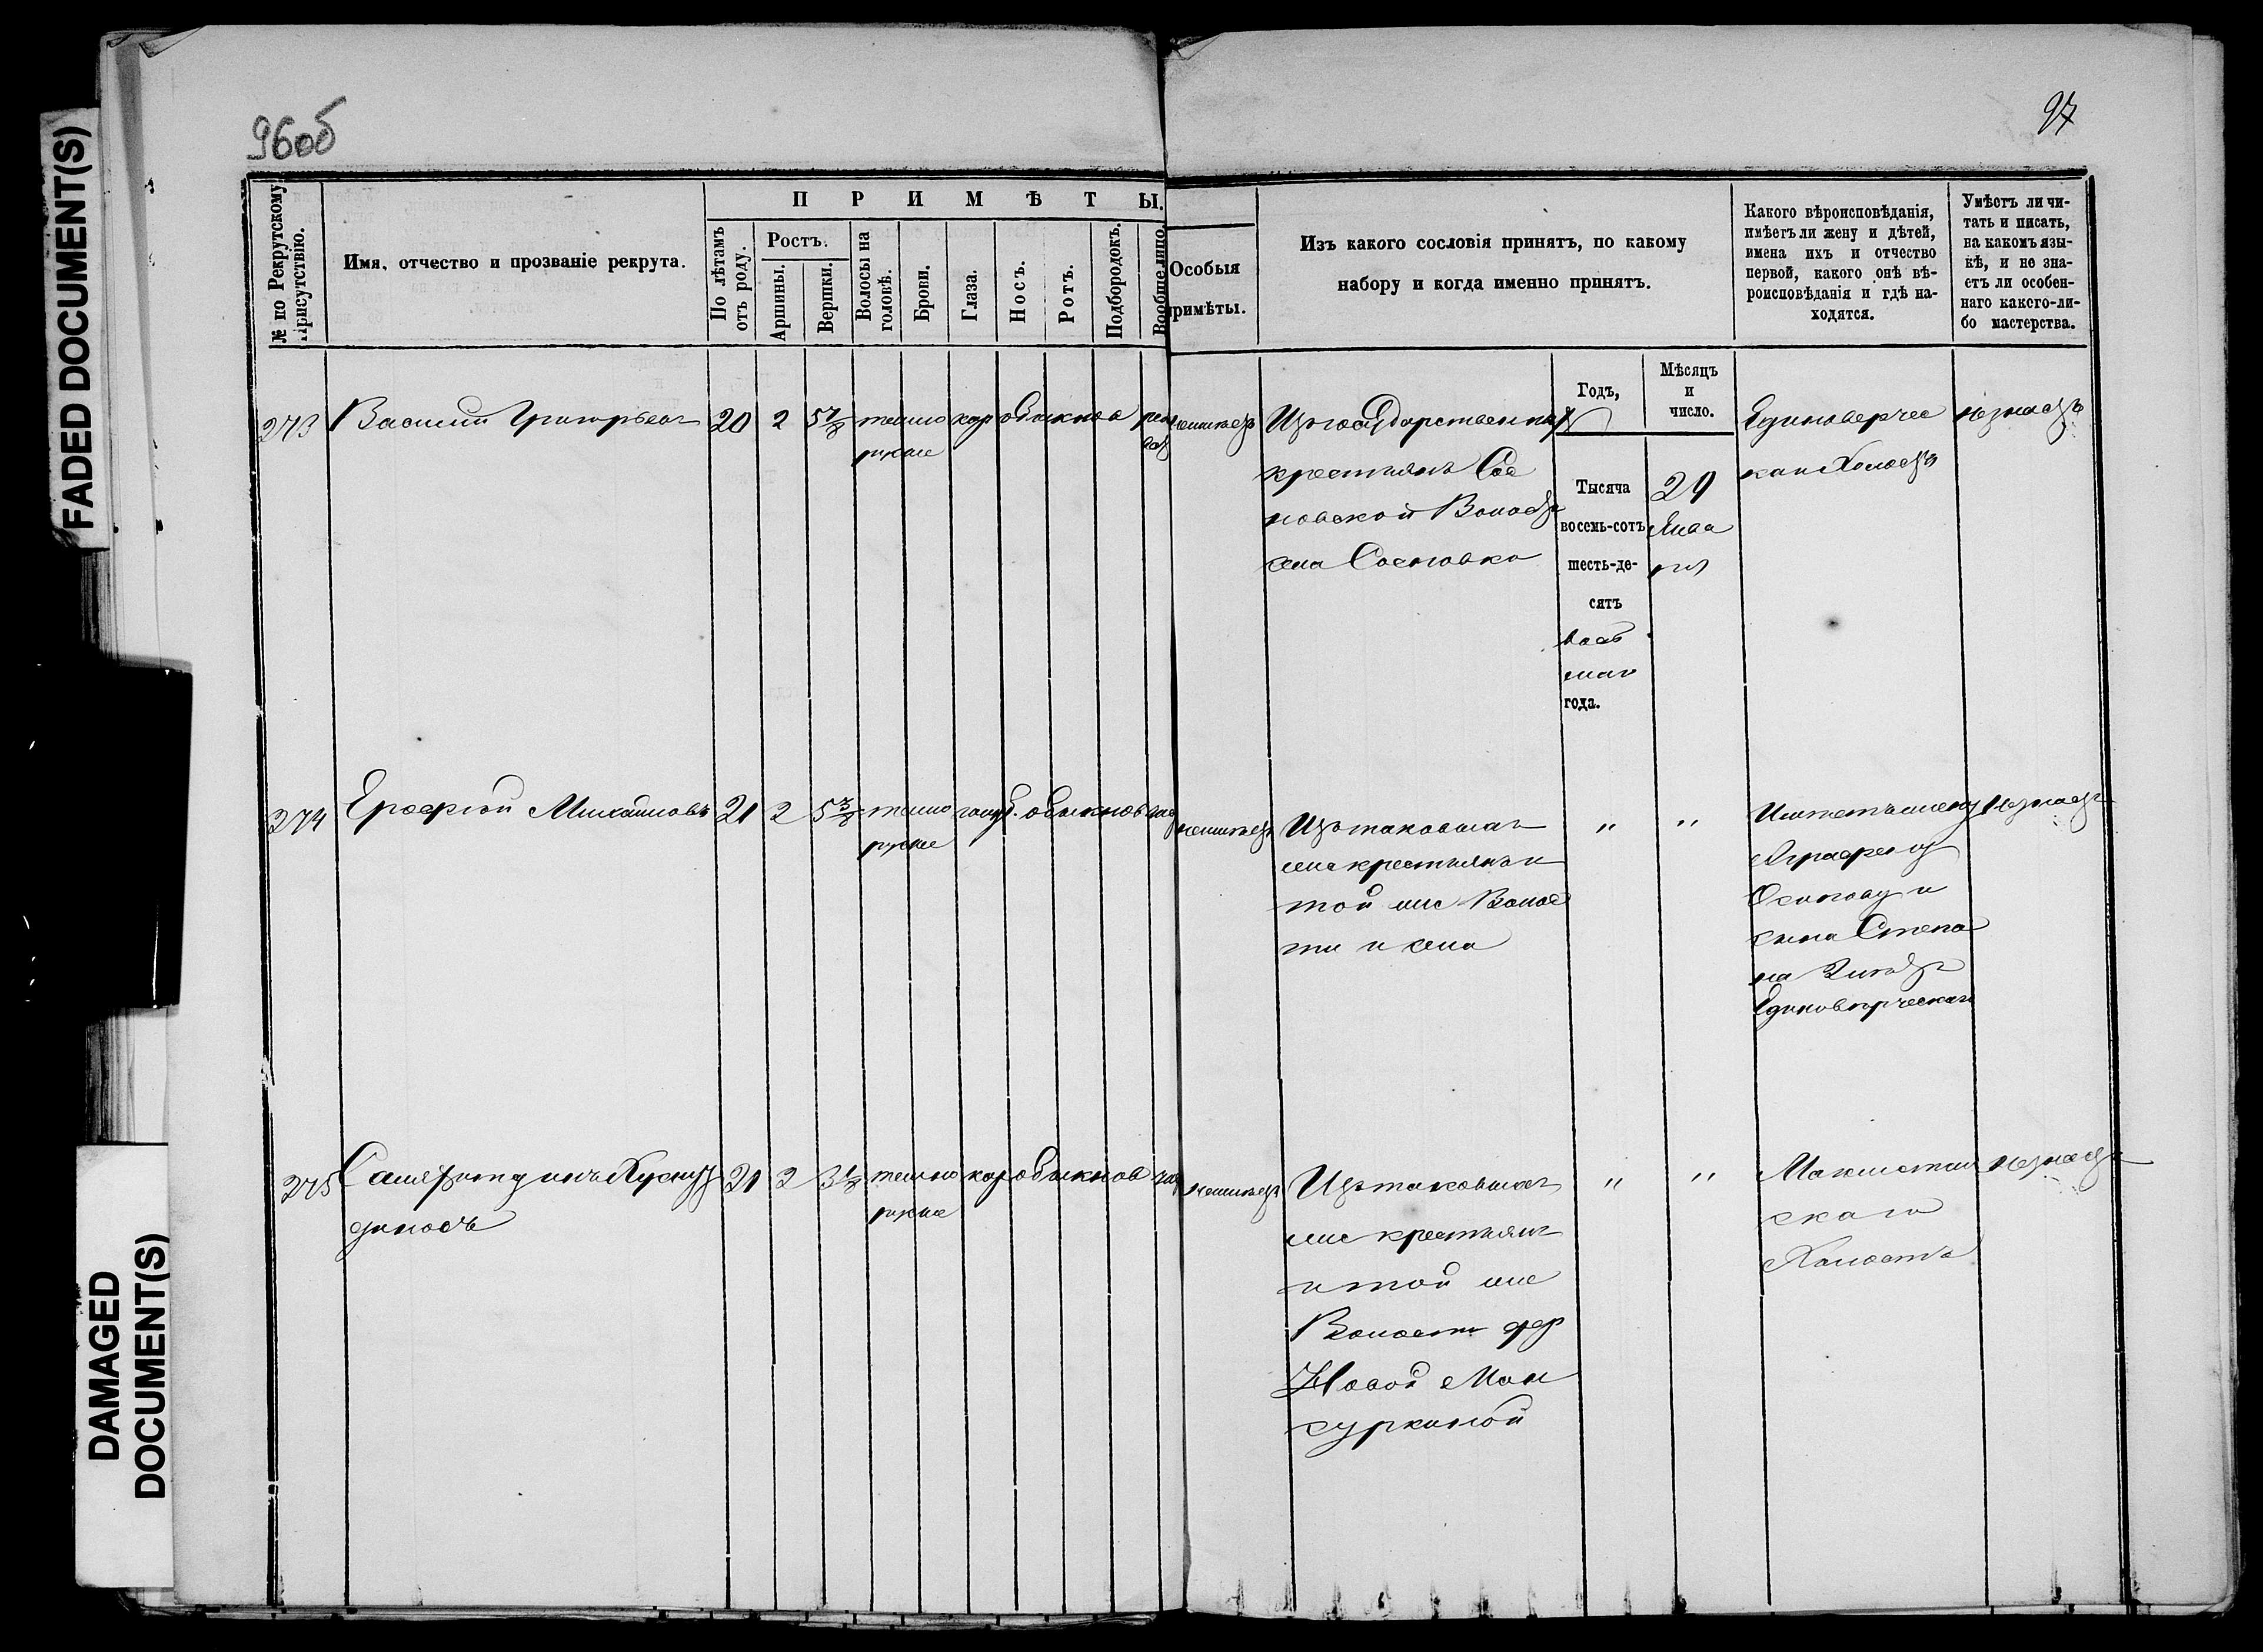 96об
97
FADED DOCUMENT(S)
DAMAGED
DOCUMENT(S)
№ по Рекрутскому
Присутствію.
Имя, отчество и прозваніе рекрута.
ПРИМѢТЫ.
По лѣтамъ
отъ роду.
Ростъ.
Аршины.
Вершки.
Волосы на
головѣ.
Брови.
Глаза.
Носъ.
Ротъ.
Подбородокъ.
Вообще лицо.
Особыя
примѣты.
Изъ какого сословія принятъ, по какому
набору и когда именно принятъ.
Какого вѣроисповѣданія,
имѣетъ ли жену и дѣтей,
имена ихъ и отчество
первой, какого онѣ вѣ-
роисповѣданія и гдѣ на-
ходятся.
Умѣетъ ли чи-
тать и писать,
на какомъ язы-
кѣ, и не зна-
етъ ли особен-
наго какого-ли-
бо мастерства.
Годъ,
Мѣсяцъ
и
число.
273 Василий Григорьевъ 20 2 5 7/8 темно кар обыкнов
русые
неимеетъ Изъ государственныхъ
крестьянъ Сос
новской Волости
села Сосновка
Тысяча
восемь-сотъ
шесть-де-
сятъ
вось
маго
года.
29
Янва
ря
Единоверчес
каго Холостъ
незнаетъ
274 Ерофей Михайловъ 21 2 5 3/8 темно голуб. обыкнов
русые
неимеетъ Изъ таковыхъ
же крестьянъ и
той же Волос
ти и села
" "
Имеетъ жену
Аграфену
Осипову и
сына Степа
на
Единоверческаго
незнаетъ
275
диновъ
21 2 3 1/8 темно кар обыкнов
русые
неимеетъ Изъ таковыхъ
же крестьянъ
и той же
Волости дер
Новой Ман
суркиной
" "
Магометан
скаго
Холостъ
незнаетъ